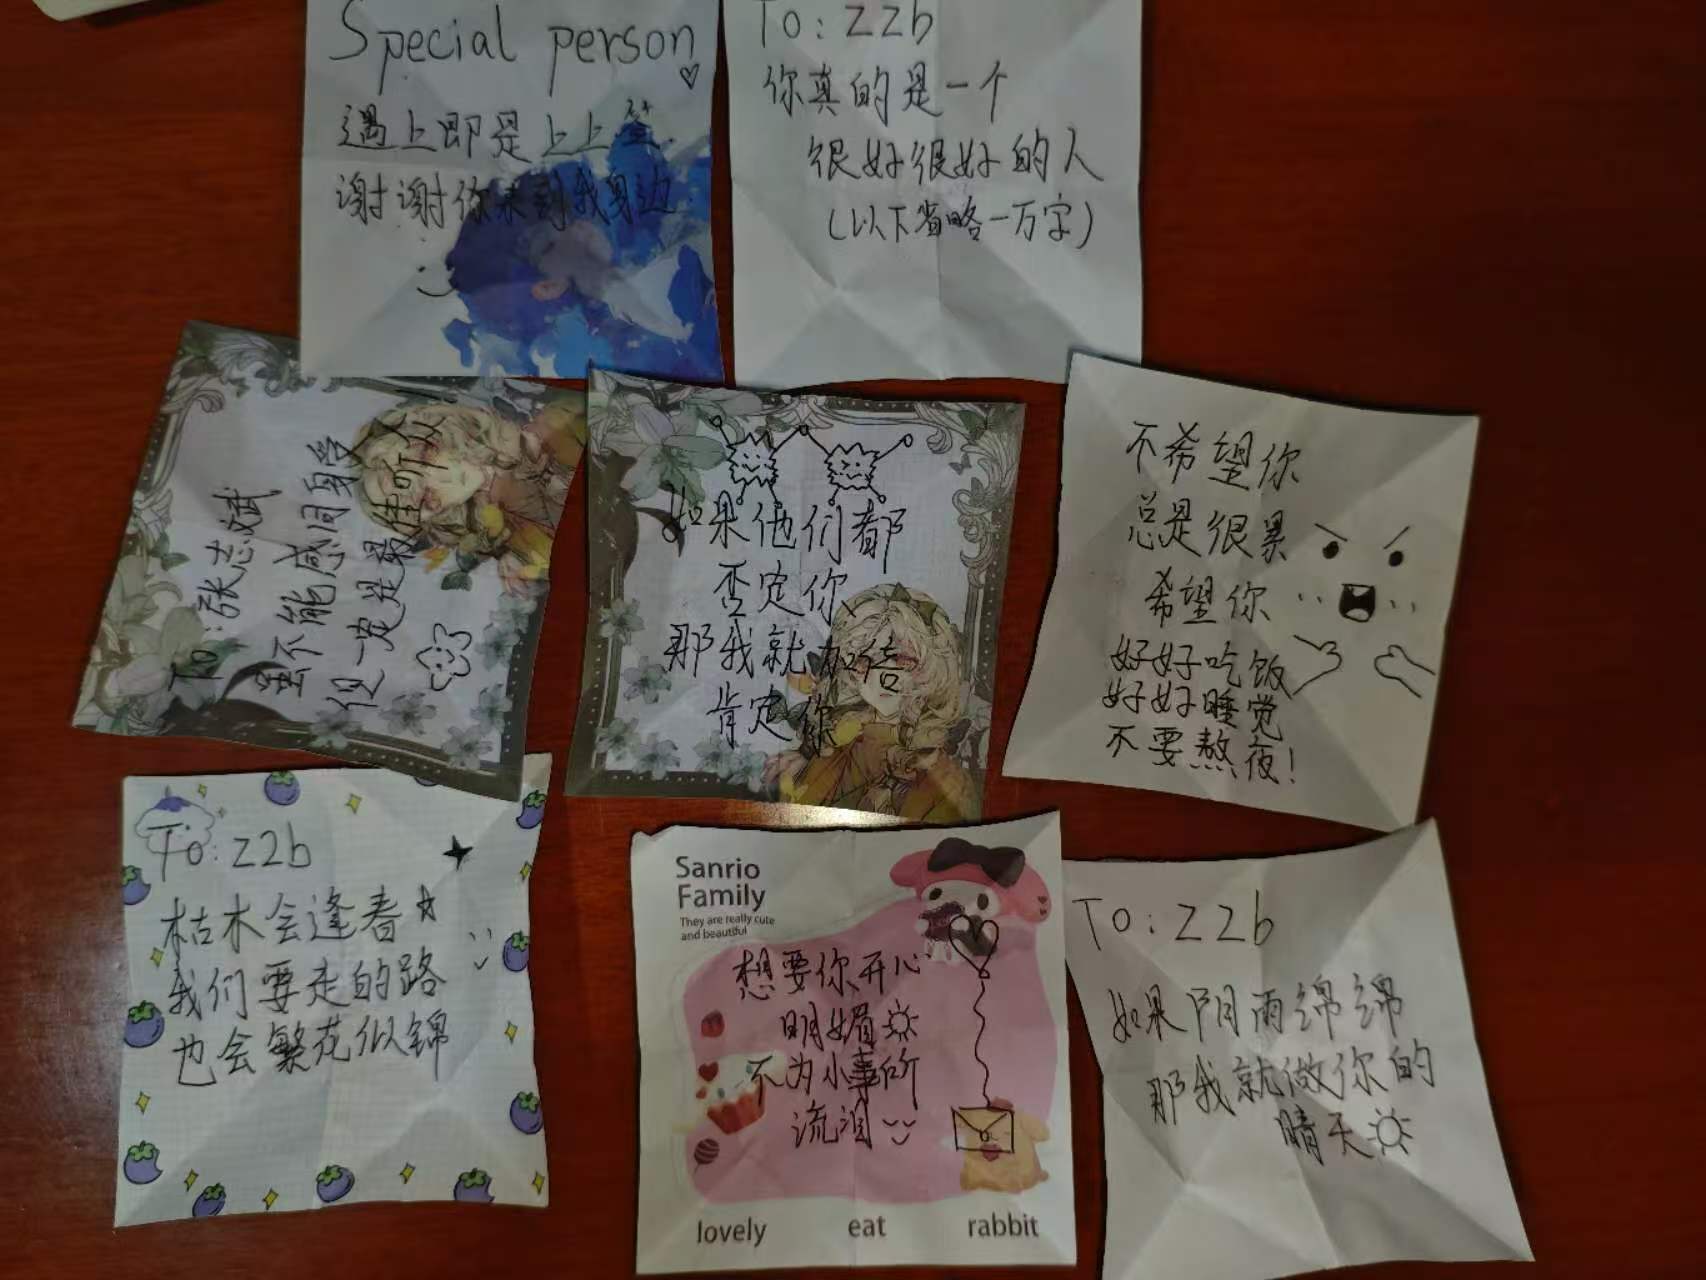 Special person
遇上即是上上签
谢谢你来到我身边
To: zzb
你真的是一个
很好很好的人
(以下省略一万字)
To: 张志斌
虽不能感同身受
但一定是最佳听众
如果他们都
否定你
那我就加倍
肯定你
不希望你
总是很累
希望你
好好吃饭
好好睡觉
不要熬夜!
To: zzb
枯木会逢春
我们要走的路
也会繁花似锦
Sanrio
Family
They are really cute
and beautiful
想要你开心
明媚
不为小事所
流泪
lovely eat rabbit
To: zzb
如果阴雨绵绵
那我就做你的
晴天